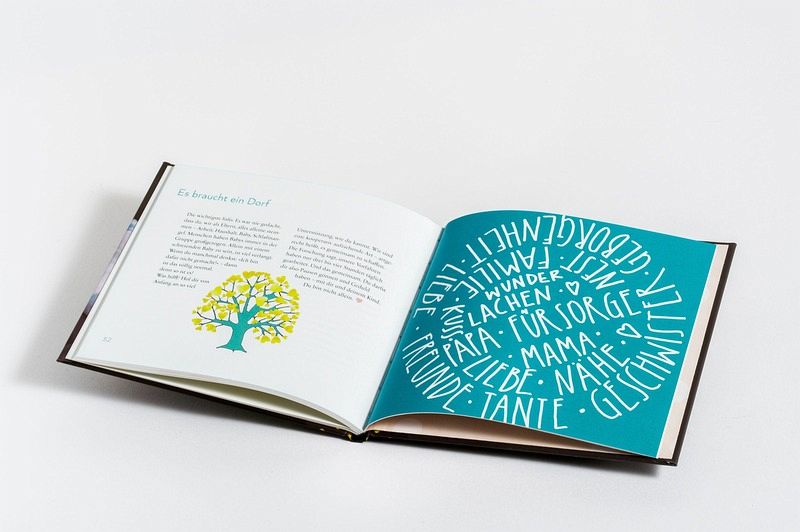 Es braucht ein Dorf
Die wichtigste Info: Es war nie gedacht,
dass du, wir als Eltern, alles alleine stem-
men – Arbeit, Haushalt, Baby, Schlafman-
gel. Menschen haben Babys immer in der
Gruppe großgezogen. Allein mit einem
schreienden Baby zu sein, ist viel verlangt.
Wenn du manchmal denkst: «Ich bin
dafür nicht gemacht!» – dann
ist das völlig normal,
denn so ist es!
Was hilft? Hol dir von
Anfang an so viel
Unterstützung, wie du kannst. Wir sind
eine kooperativ aufziehende Art –
recht heißt, es gemeinsam zu schaffen.
Die Forschung sagt, unsere Vorfahren
haben nur drei bis vier Stunden täglich
gearbeitet. Und das gemeinsam. Du darfst
dir also Pausen gönnen und Geduld
haben – mit dir und deinem Kind.
Du bist nicht allein.
52
WUNDER
LACHEN
FAMILIE
NEST
FÜRSORGE
MAMA
PAPA
KUSS
LIEBE
NÄHE
LIEBE
GEBORGENHEIT
GESCHWISTER
TANTE
FREUNDE